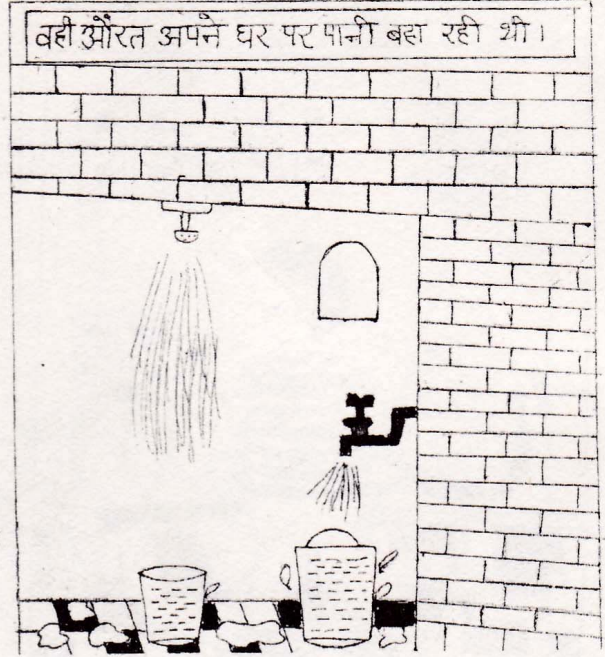 वही औंरत अपने घर पर पानी बहा रही थी।